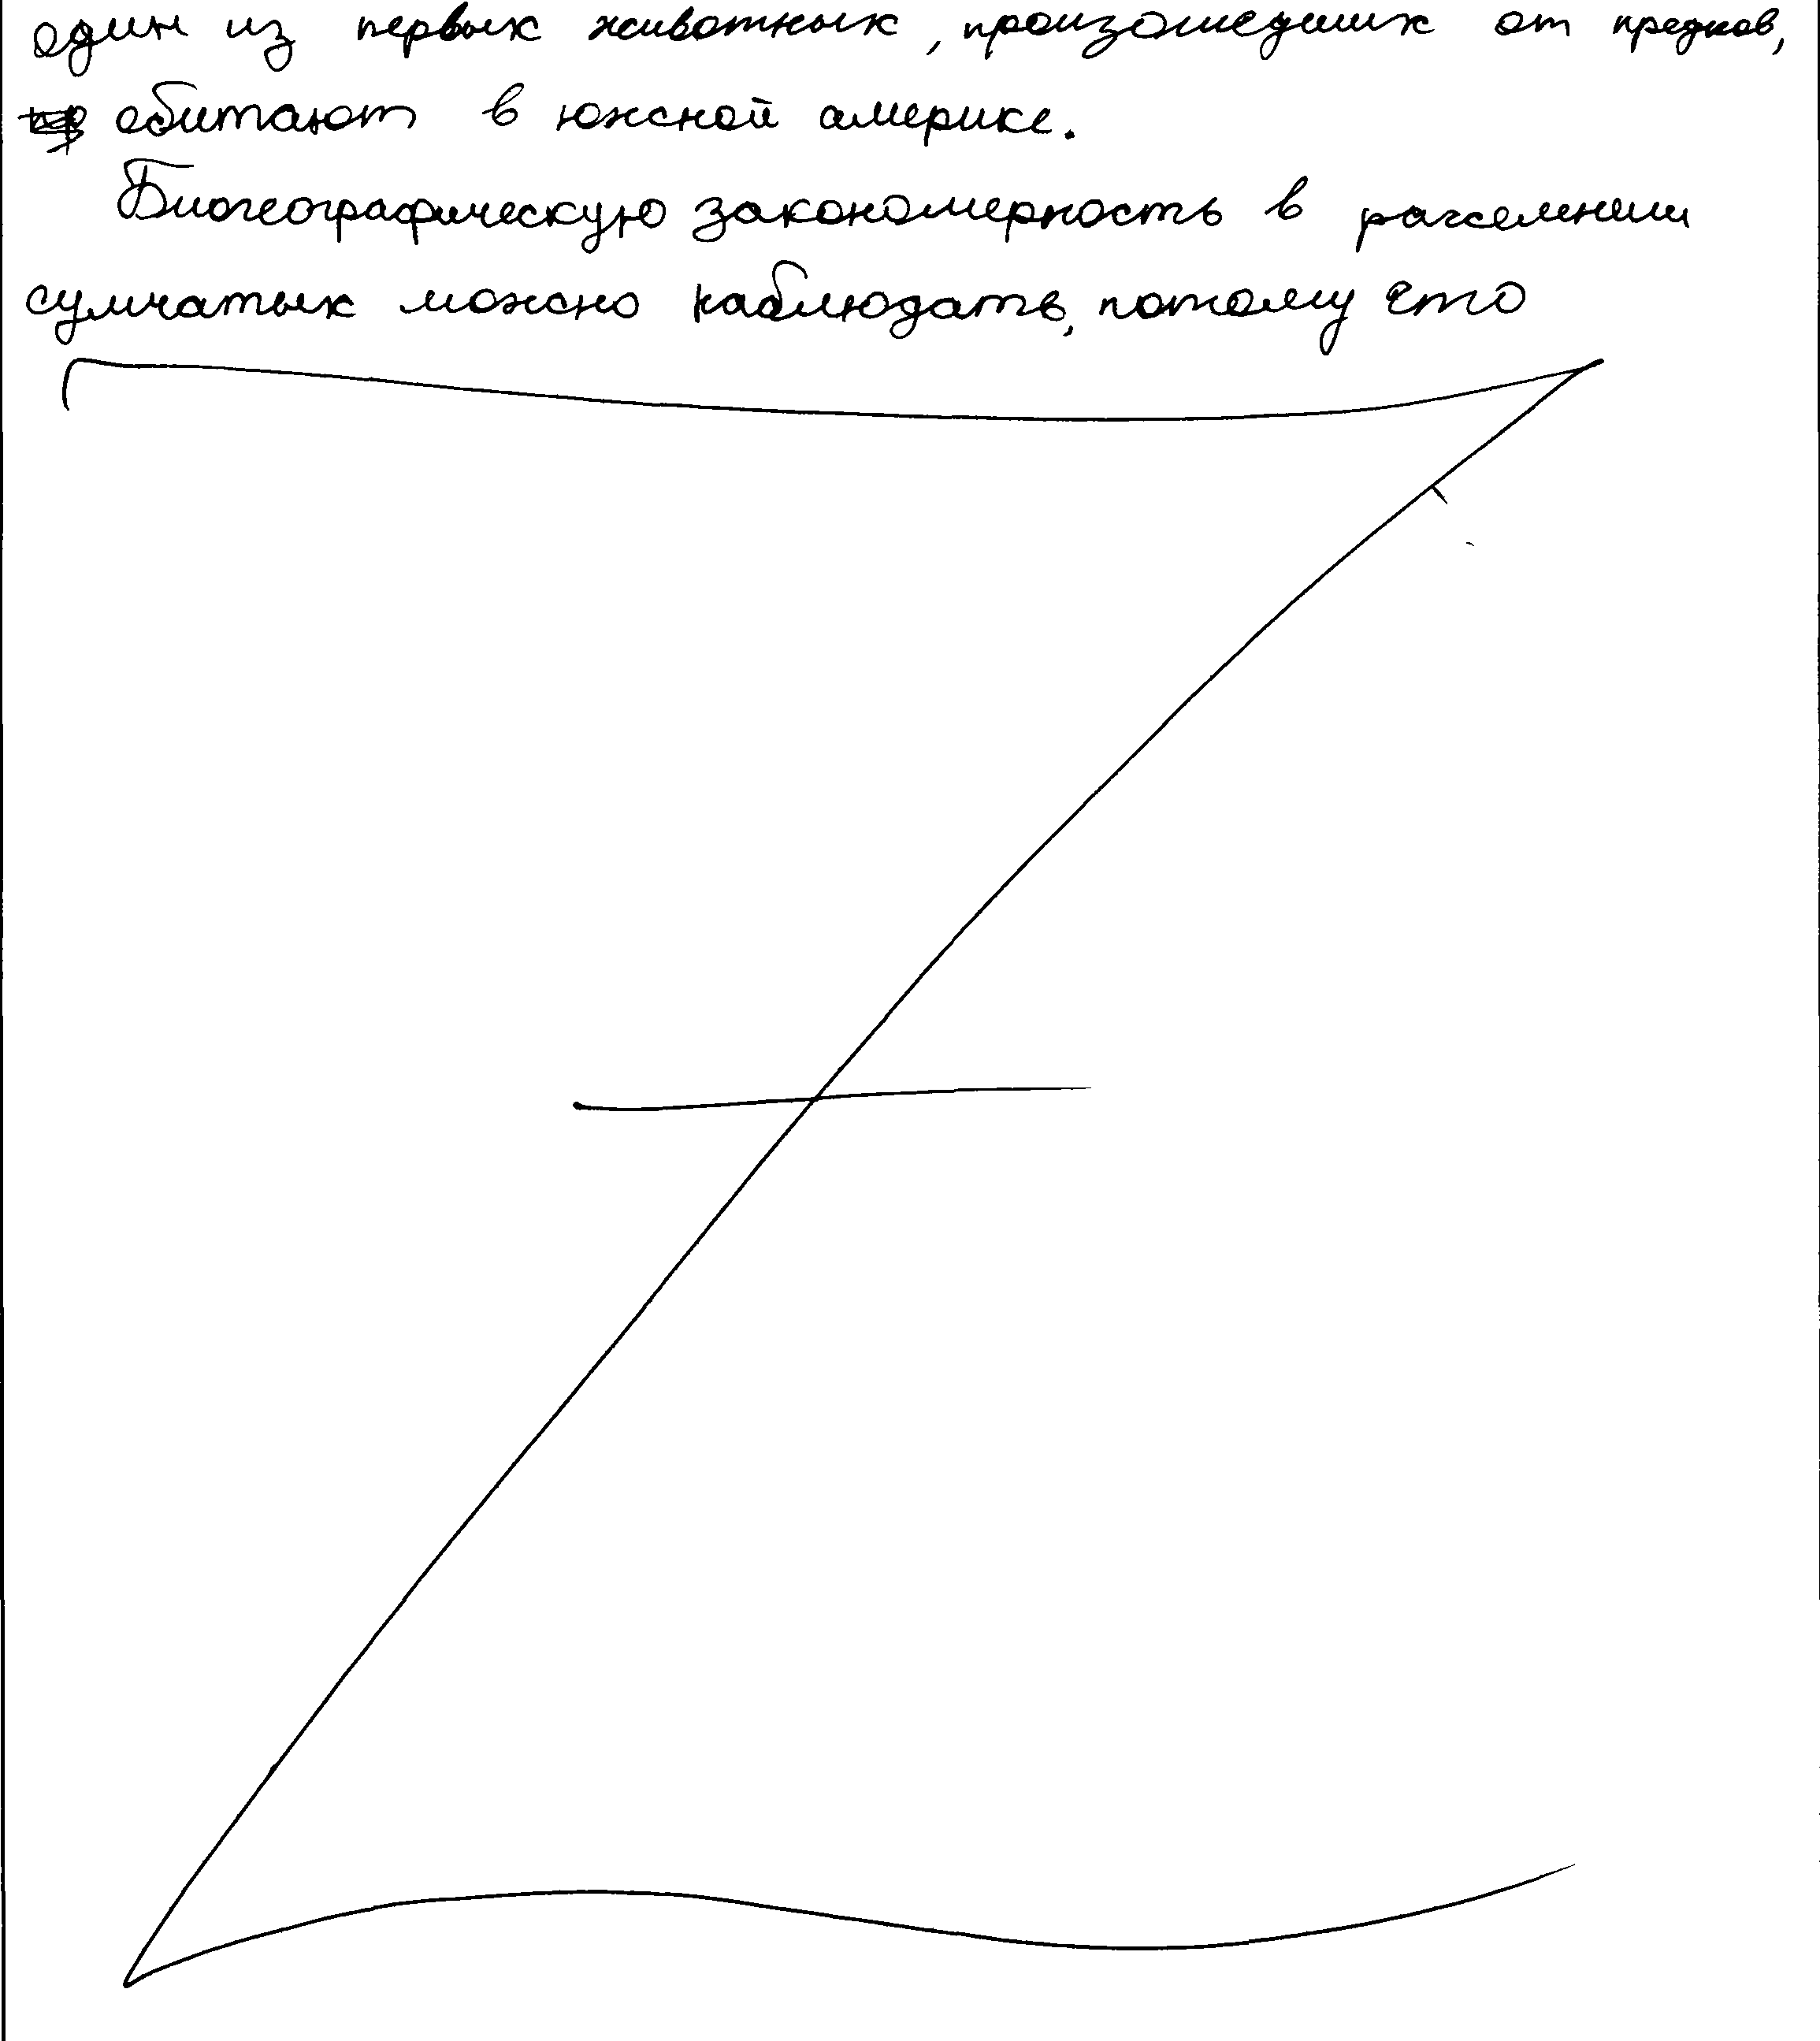 один из первых животных, произошедших от предков,
обитают в южной америке.
Биогеографическую закономерность в расселении
сумчатых можно наблюдать, потому что